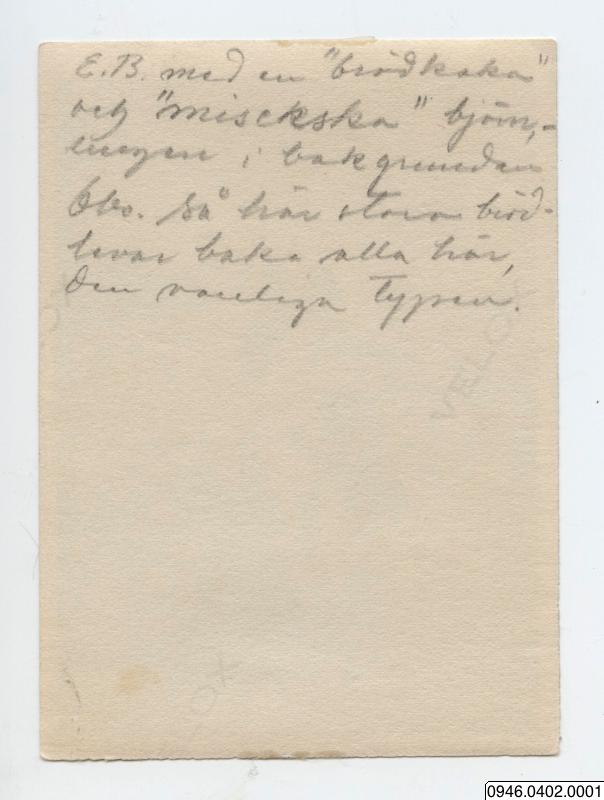 E.B. med en "brödkaka"
och "misckska" björn,-
ungen i bakgrunden
Obs. Så här stora bröd-
levar baka alla här,
den vanliga typen.
VELOX
VELOX
0946.0402.0001